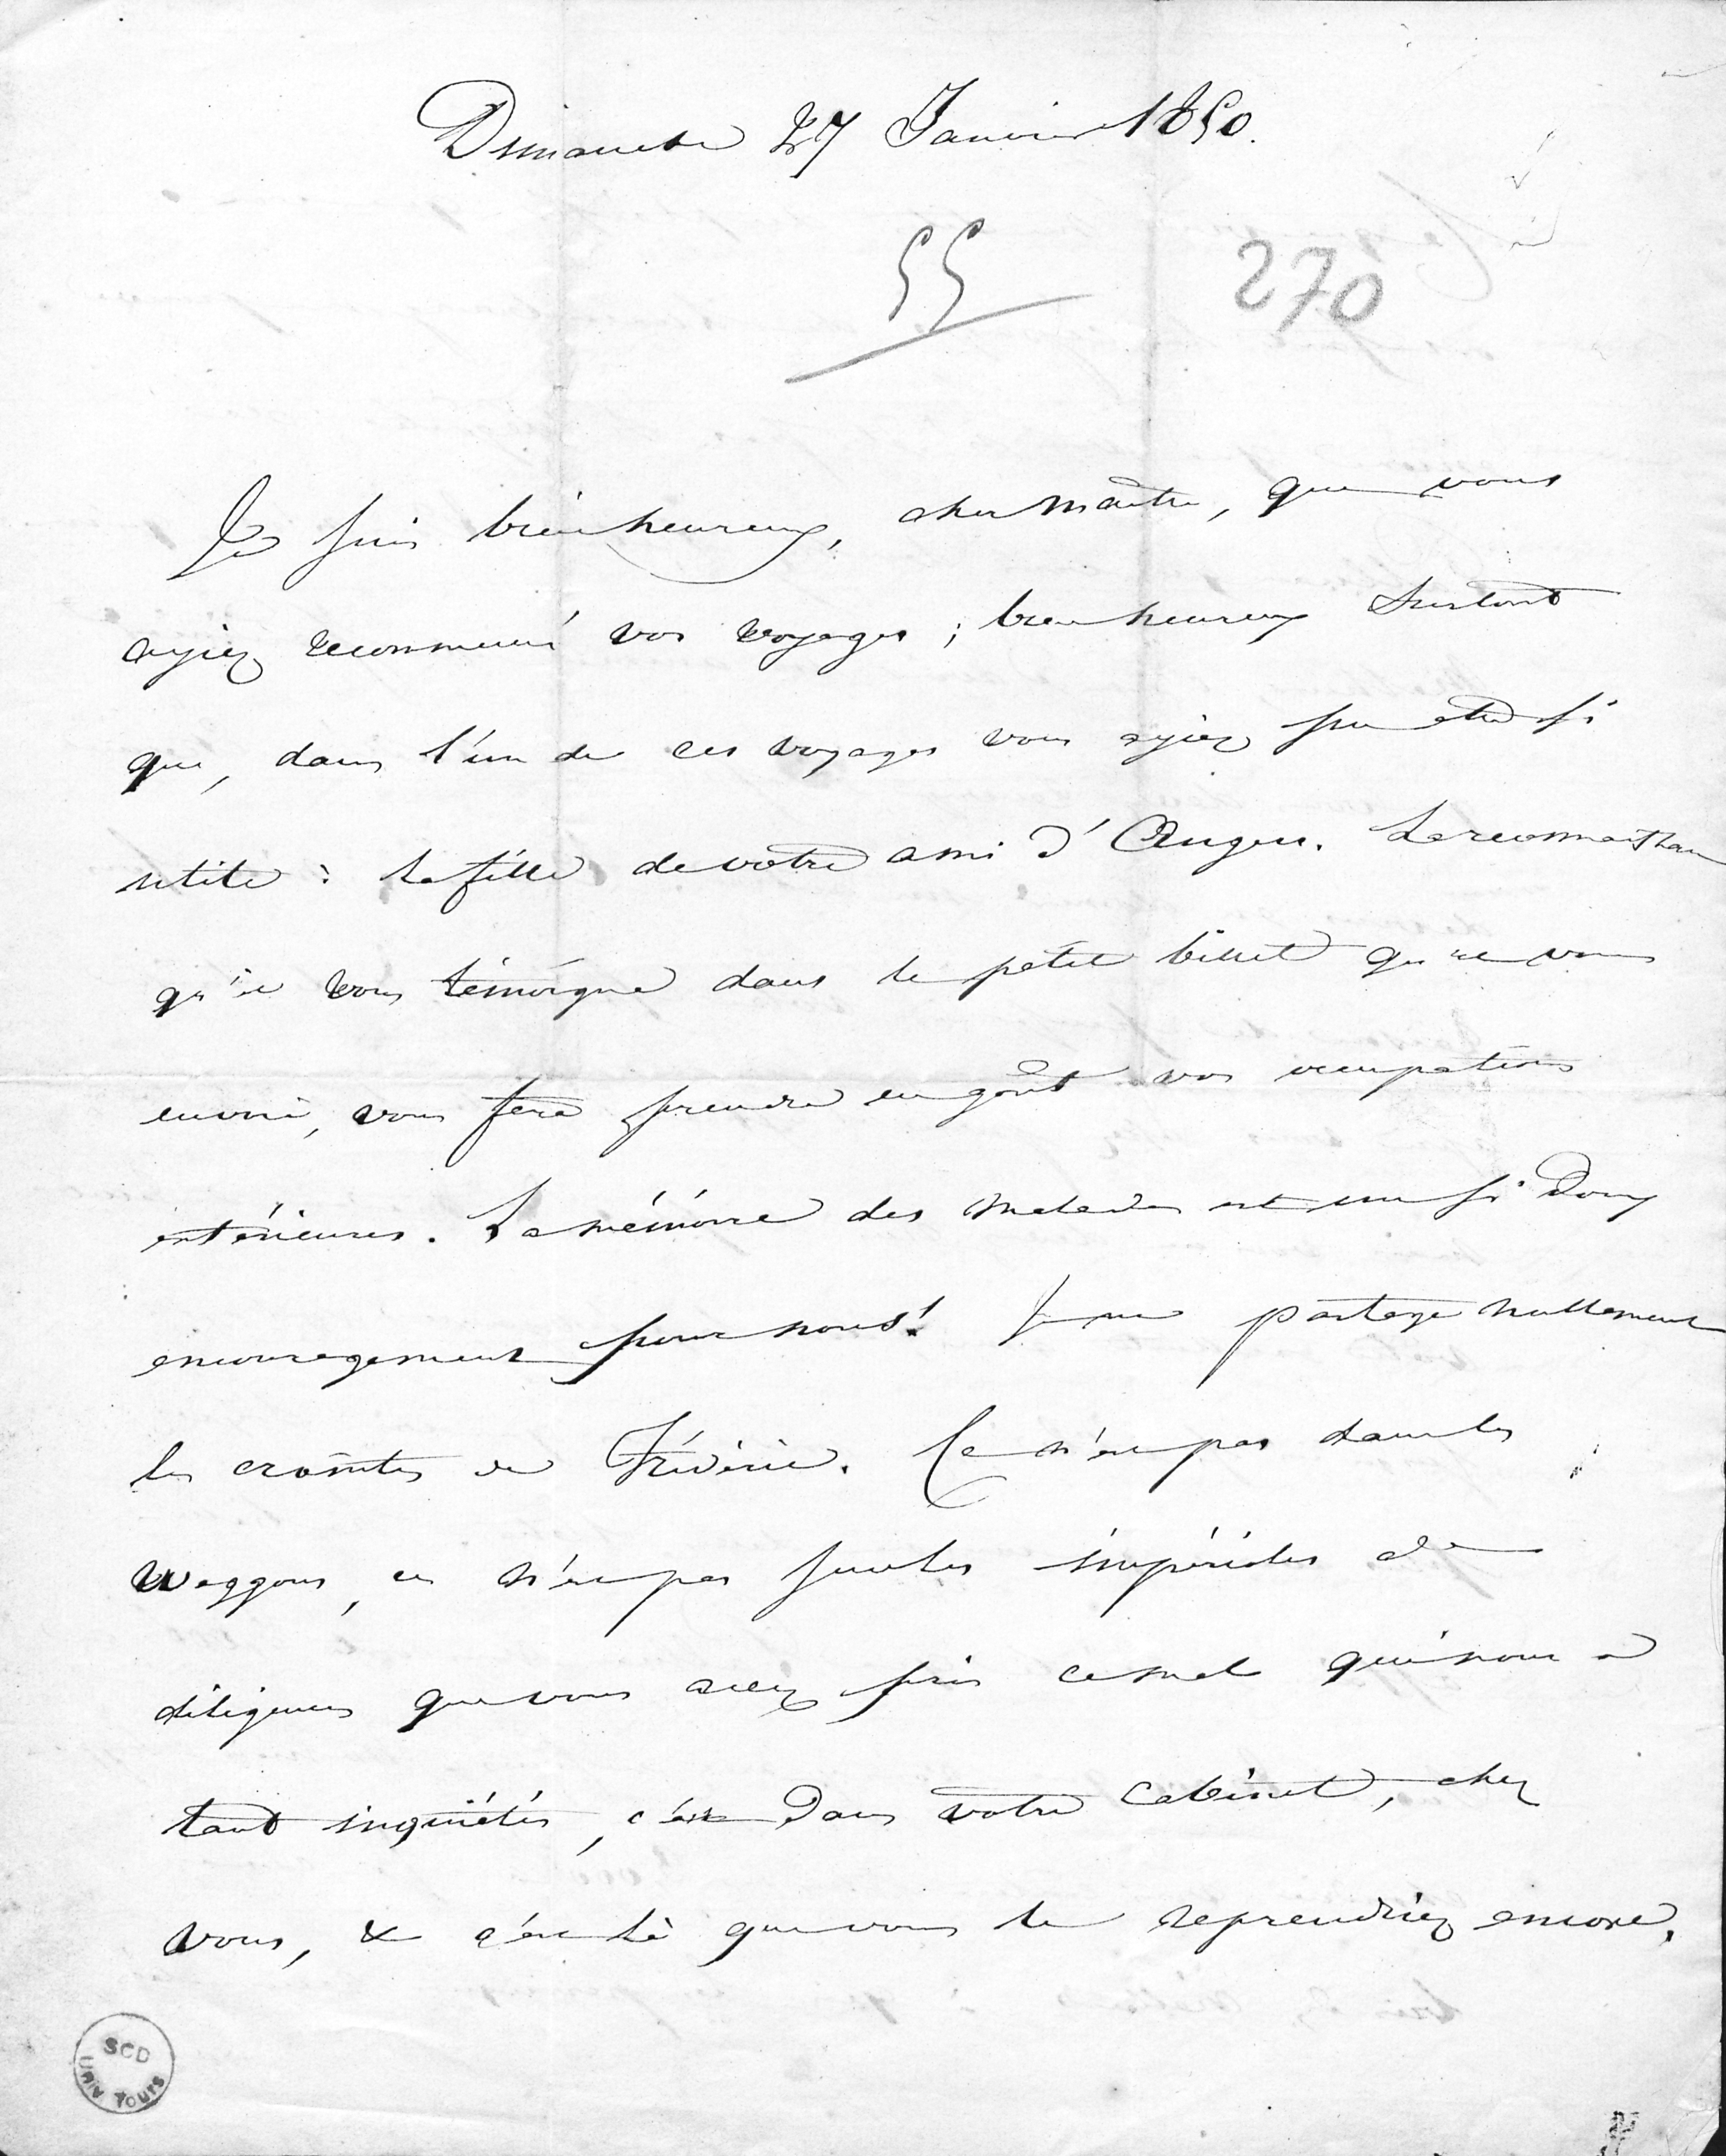 Dimanche 27 Janvier 1850.
55
270
Je suis bien heureux, cher maître, que vous
ayiez recommencé vos voyages ; bien heureux surtout
que, dans l'un de ces voyages vous ayiez pu être si
utile à la fille de votre ami d'Angers. La reconnaissance
qu'il vous témoigne dans le petit billet que je vous
envoie, vous fera prendre en goût vos occupations
extérieures. La mémoire des malades est un si doux
encouragement pour nous! Je ne partage nullement
les craintes de Frédéric. Ce n'est pas dans les
waggons, ce n'est pas sur les impériales de
diligences que vous avez pris ce mal qui nous a
tant inquiétés, c'est dans votre cabinet, chez
vous, & c'est là que vous le reprendriez encore.
SCD
UNIV TOURS